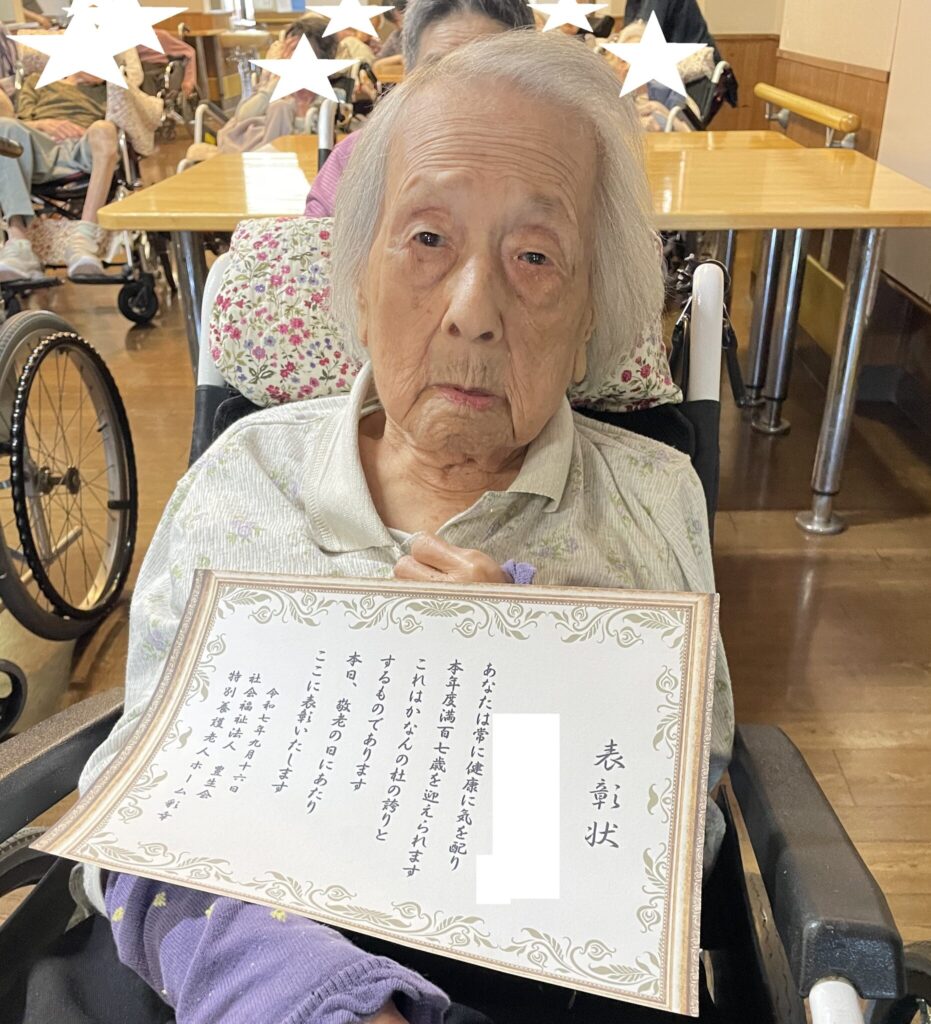 表彰状
あなたは常に健康に気を配り
本年度満百七歳を迎えられます
これはかなんの杜の誇りと
するものであります
本日、敬老の日にあたり
ここに表彰いたします
令和七年九月十六日
社会福祉法人 豊生会
特別養護老人ホーム